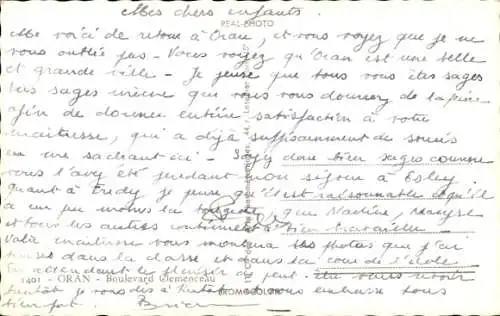 Mes chers enfants.
REAL-PHOTO
Me voici de retour à Oran, et vous voyez que je ne
vous oublie pas - Vous voyez qu'Oran est une belle
et grande ville - Je pense que tous vous êtes sages
très sages même que vous vous donnez de la peine
afin de donner entière satisfaction à votre
maîtresse, qui a déjà suffisamment de soucis
en me sachant ici - Soyez donc bien sages comme
vous l'avez été pendant mon séjour à
Quant à Fredy je pense qu'il est raisonnable et qu'il
a un peu moins la que Nadine, Maryse
et tous les autres continuent à bien travailler -
Votre maîtresse vous montrera les photos que j'ai
prises dans la classe et dans la cour de l'école
En attendant le plaisir de vous revoir
1401 - ORAN - Boulevard Clemenceau
bientôt je vous dis à bientôt vous embrasse tous
bien fort.
BROMOCOLOR